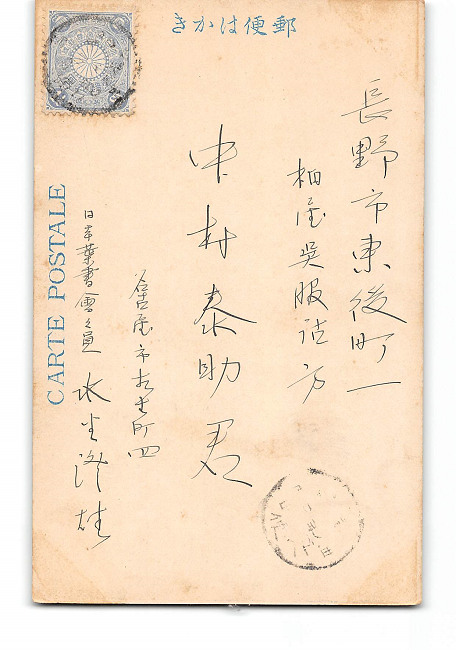 郵便はかき
CARTE POSTALE
長野市東後町一
柏屋呉服店方
中村泰助君
名古屋市 町四
日本葉書會々員
水 澄雄